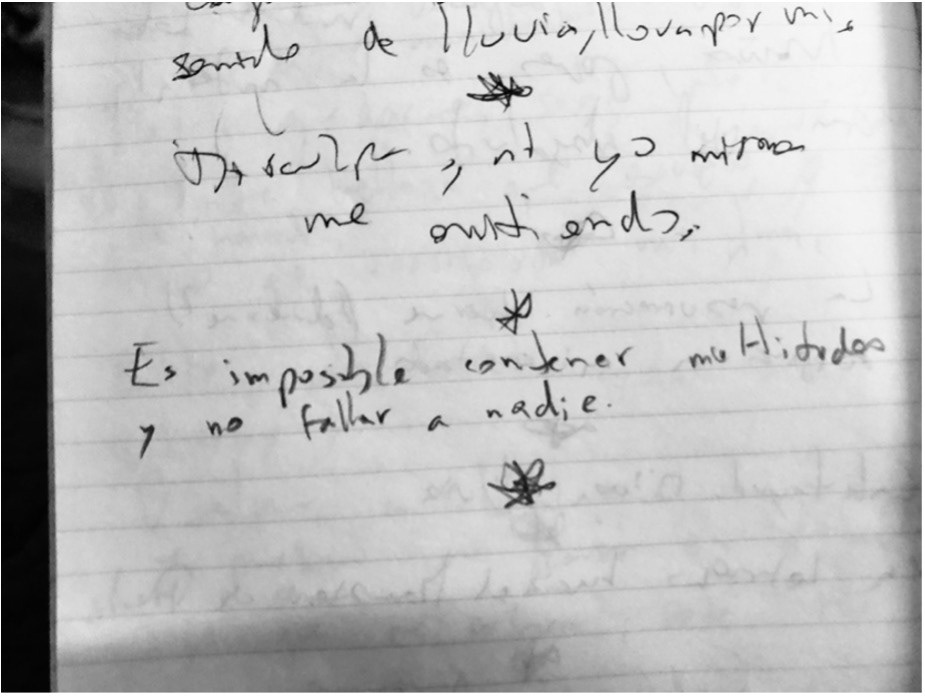 de lluvia, llovan por mis
Disculpa, ni yo misma
me entiendo.
Es imposible contener multitudes
y no fallar a nadie.